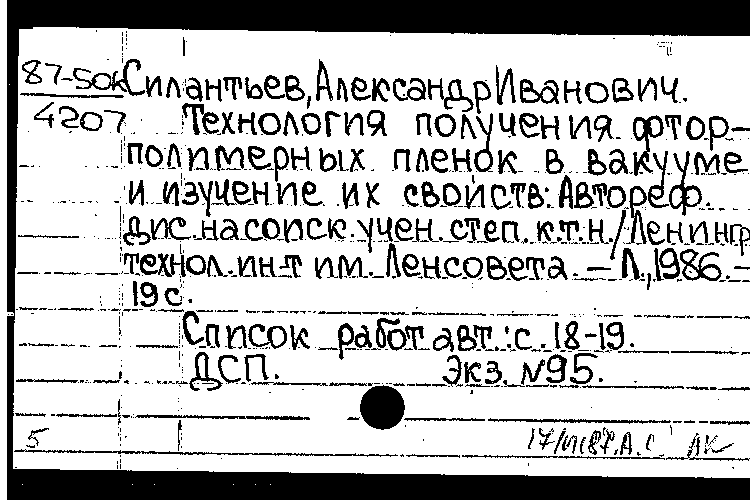 87-50к Силантьев, Александр Иванович.
4207 Технология получения фтор-
полимерных пленок в вакууме
и изучение их свойств: Автореф.
дис. на соиск. учен. степ. к.т.н. / Ленингр
технол. ин-т им. Ленсовета. — Л., 1986. —
19 с.
Список работ авт.: с. 18-19.
ДСП. Экз. №95.
5